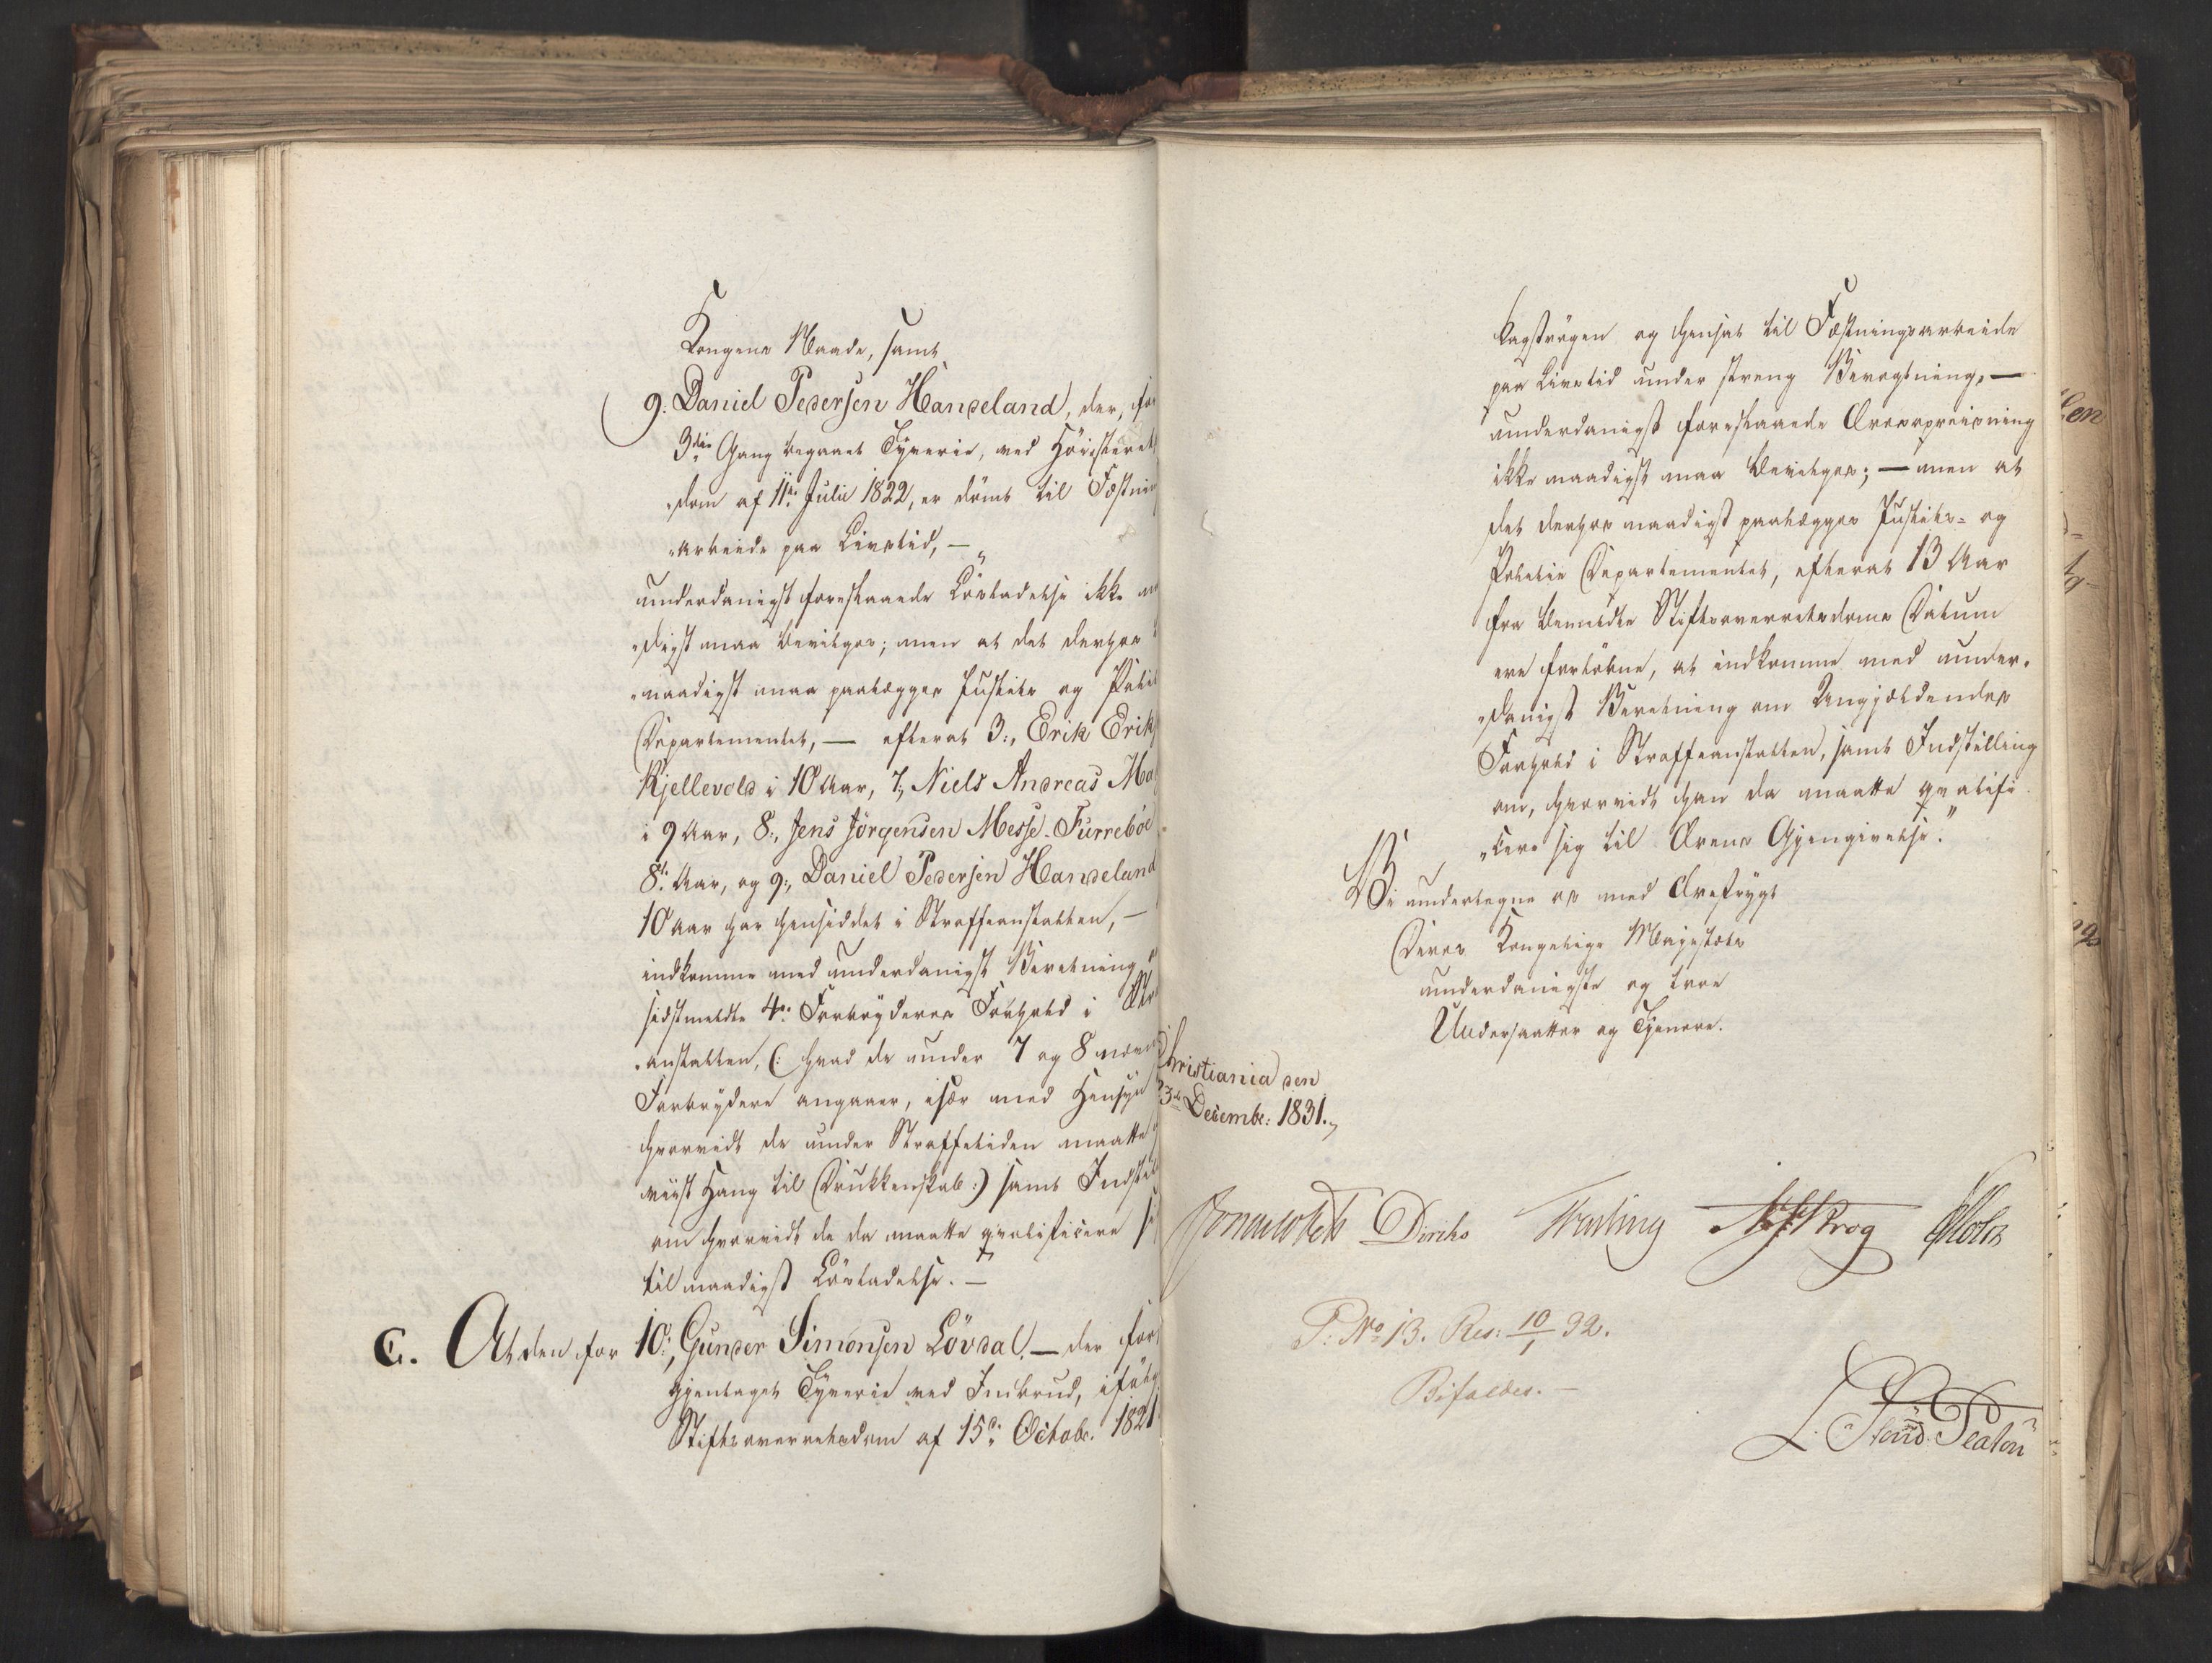 Kongens Naade, samt
9. Daniel Pedersen Handeland, der, for
3die Gang begaaet Tyverie, ved Høiesteret
dom af 11te Julii 1822, er dømt til Fæstnin
arbeide paa Livstid, —
underdanigst forestaaende Løsladelse ikke na
digst maa bevilges; men at det derhos
naadigst maa paalægges Justits og Polit
Departementet, — efterat 3., Erik Erik
Kjellevold i 10 Aar, 7., Niels Andreas Ma
i 9 Aar, 8., Jens Jörgensen Messe-Furreböe
8te Aar, og 9., Daniel Pedersen Handeland
10 Aar har hensiddet i Straffeanstalten, —
indkomme med underdanigst Beretning
sidstmeldte 4re Forbryderes Forhold i Stra
anstalten, (: hvad de under 7 og 8 nævn
Forbrydere angaaer, især med Hensyn
hvorvidt de under Straffetiden maatte
viist Hang til Drukkenskab:) samt Indstil
om hvorvidt de da maatte qvalificere si
til naadigst Løsladelse. —
C. At den for 10., Gunder Simonsen Lövdal, — der for
gjentaget Tyverie ved Indbrud, ifølg
Stiftsoverretsdom af 15de Octobr. 1821
kagstrøgen og hensat til Fæstningsarbeide
paa Livstid under streng Bevogtning, —
underdanigst forestaaende Æresopreisning
ikke naadigst maa bevilges; — men at
det derhos naadigst paalægges Justits- og
Politie Departementet, efterat 13 Aar
fra bemeldte Stiftsoverretsdoms Datum
ere forløbne, at indkomme med under-
danigst Beretning om Angjældendes
Forhold i Straffeanstalten, samt Indstilling
om, hvorvidt han da maatte qvalifi
cere sig til Ærens Gjengivelse."
Vi undertegne os med Ærefrygt
Deres Kongelige Majestæts
underdanigste og troe
Undersaatter og Tjenere.
Christiania den
23de Decembr: 1831.
Diriks
Krog
P: No 13. Res: 10/1 32.
Bifaldes. —